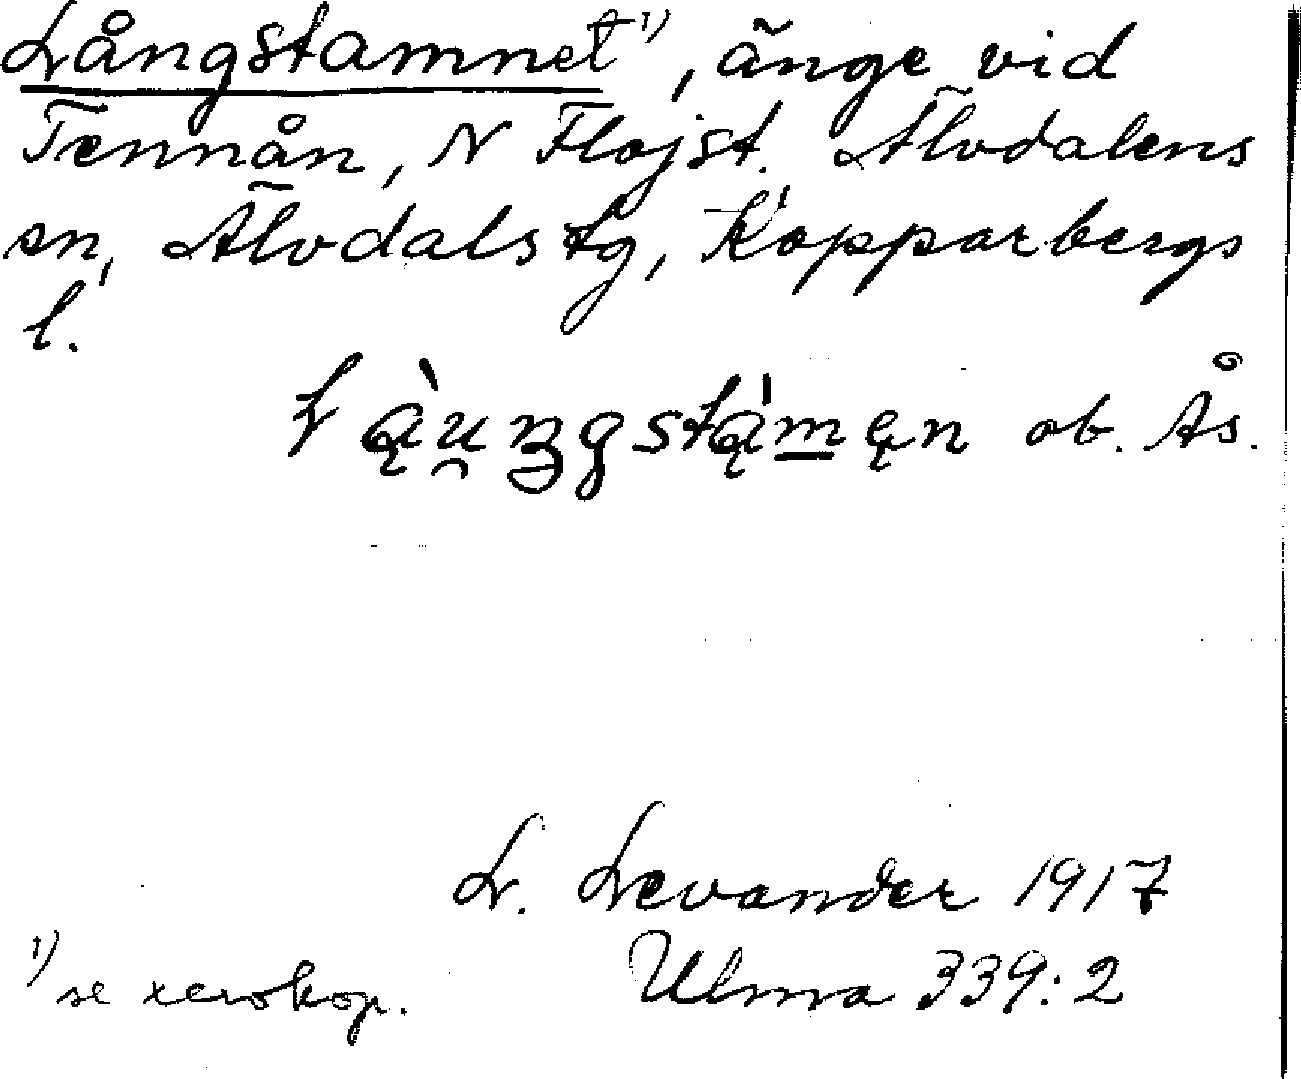 Långstamnet ¹⁾, änge vid
Tennån, N Flojst. Älvdalens
sn, Älvdals tg, Kopparbergs
l.
ob. Ås.
L. Levander 1917
¹⁾ se xerokop. Ulma 339:2